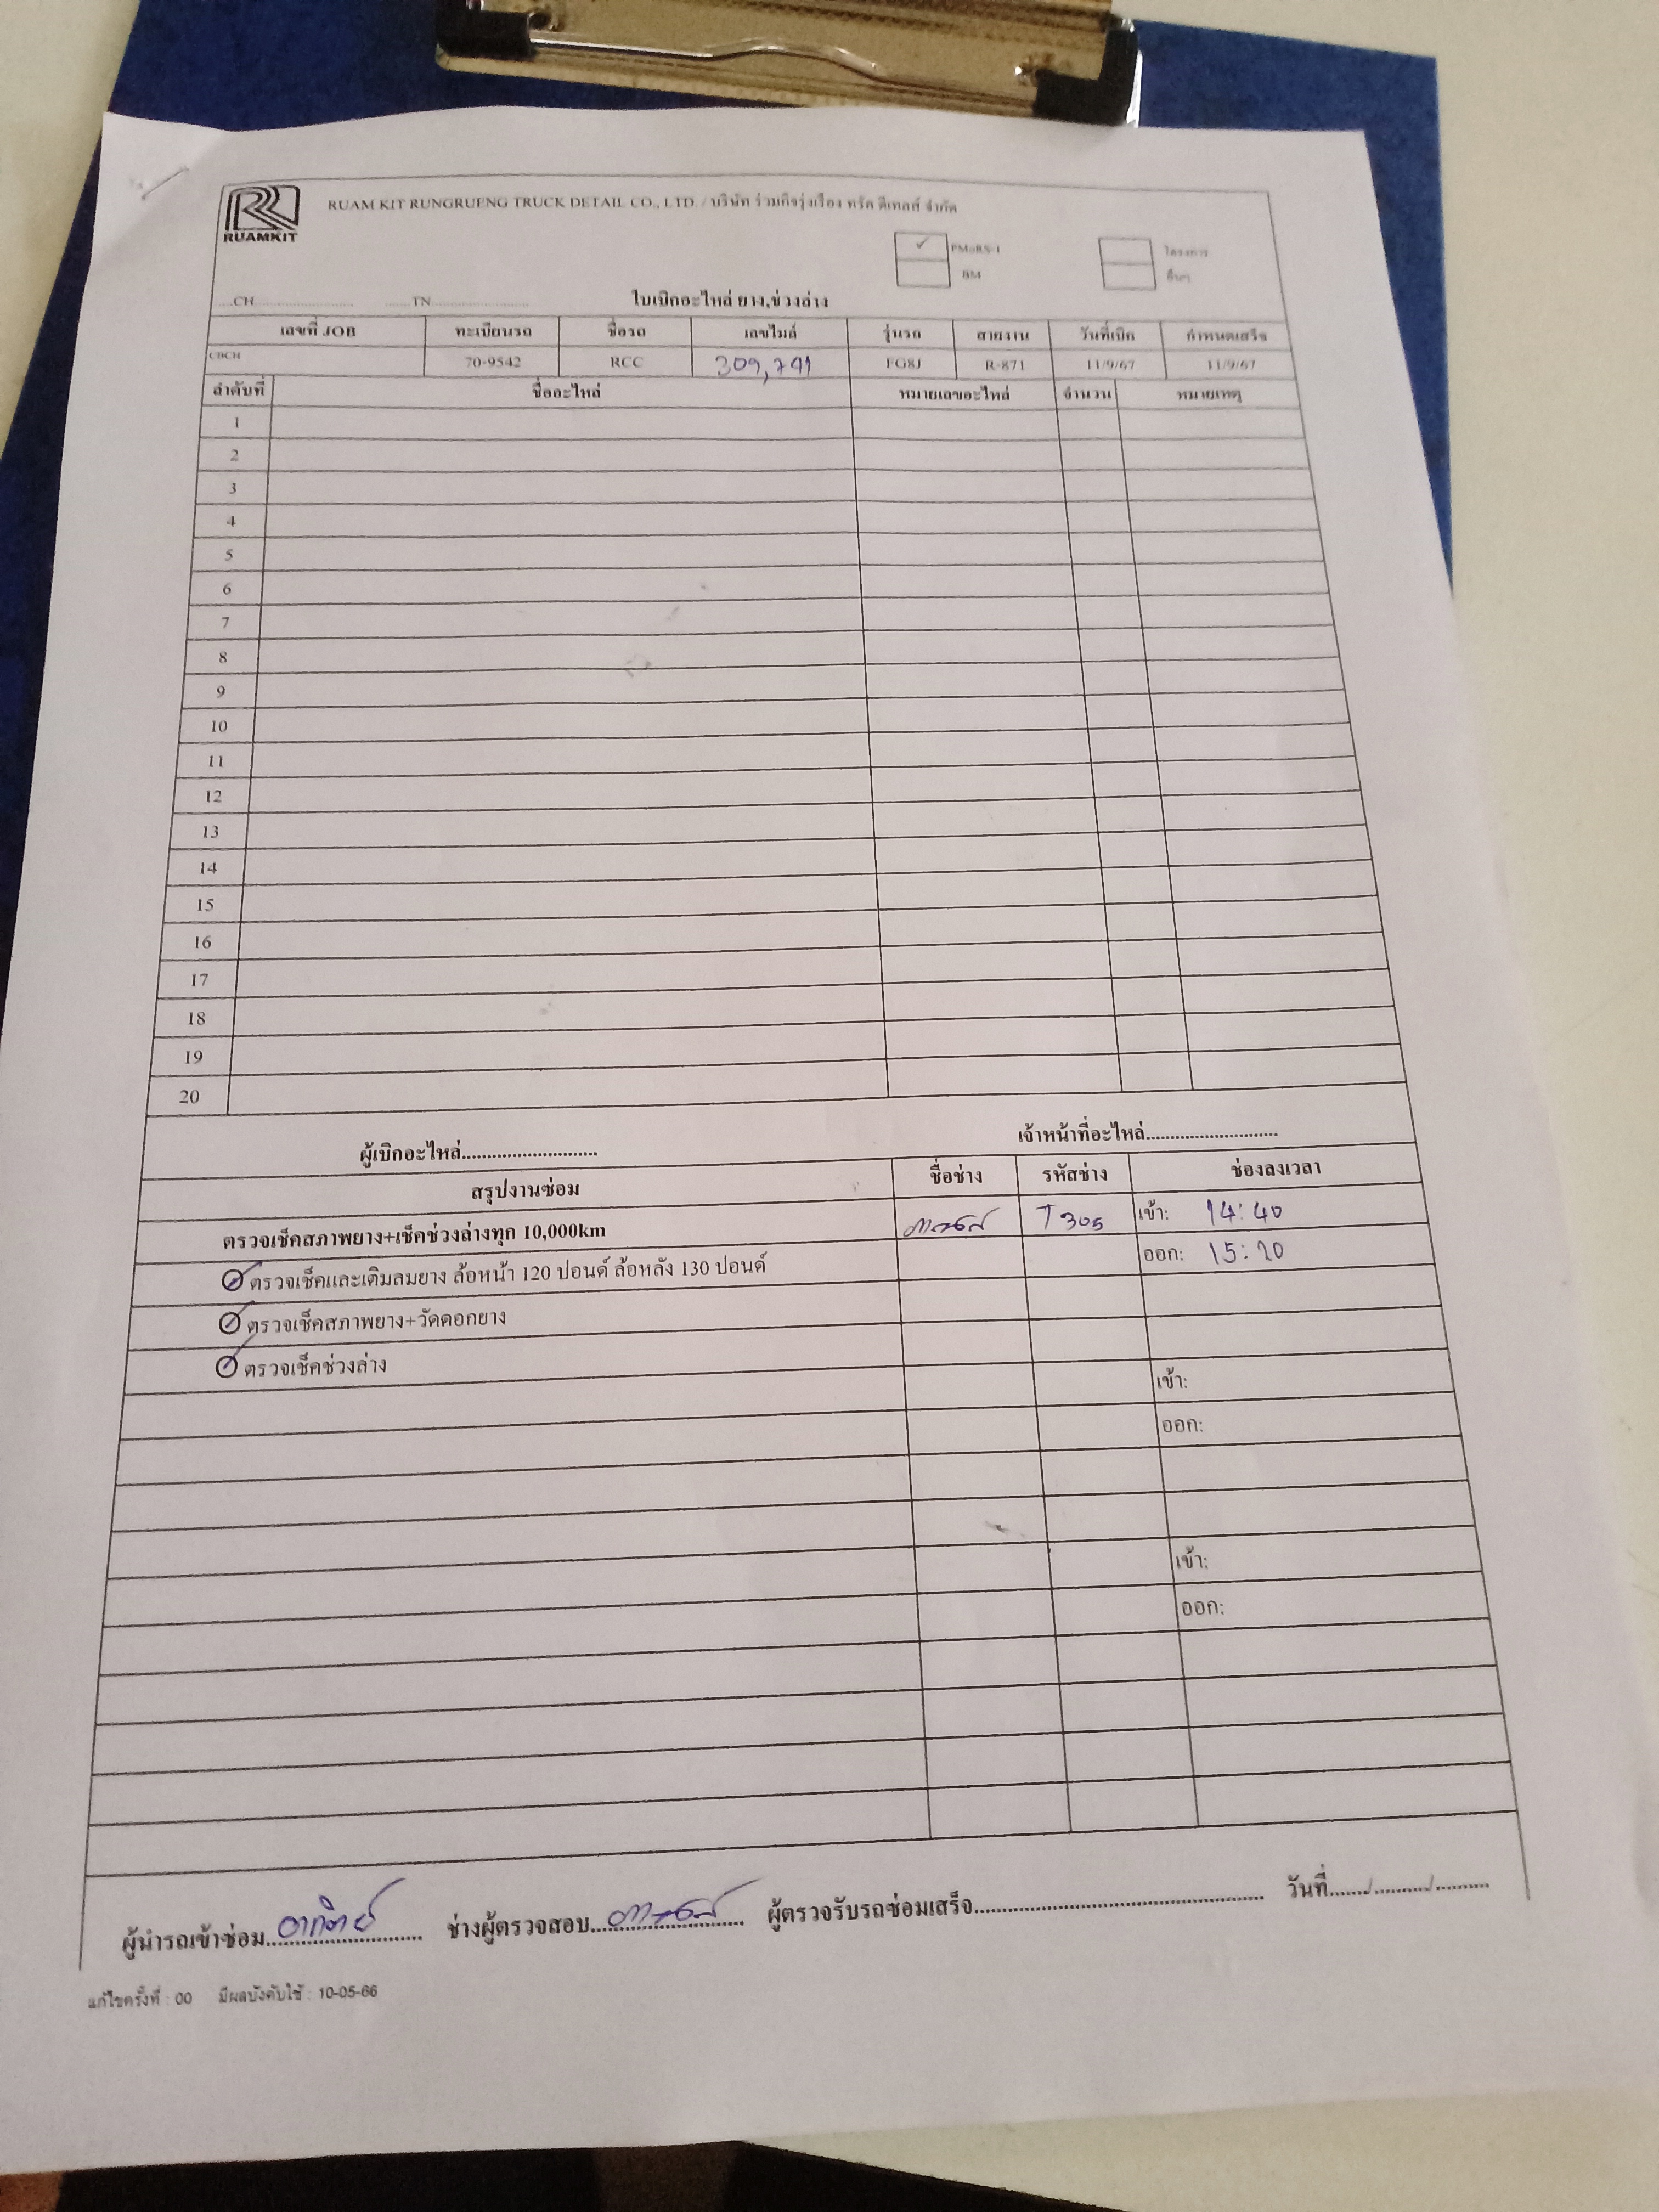 RUAMKIT
RUAM KIT RUNGRUENG TRUCK DETAIL CO., LTD. / บริษัท ร่วมกิจรุ่งเรือง ทรัค ดีเทลส์ จำกัด
✓ โครงการ
BM อื่นๆ
....CH........................ ......TN........................ ใบเบิกอะไหล่ ยาง,ช่วงล่าง
เลขที่ JOB ทะเบียนรถ ชื่อรถ เลขไมล์ รุ่นรถ สายงาน วันที่เบิก กำหนดเสร็จ
CBCH 70-9542 RCC 309,741 FG8J R-871 11/9/67 11/9/67
ลำดับที่ ชื่ออะไหล่ หมายเลขอะไหล่ จำนวน หมายเหตุ
1
2
3
4
5
6
7
8
9
10
11
12
13
14
15
16
17
18
19
20
ผู้เบิกอะไหล่........................... เจ้าหน้าที่อะไหล่...........................
สรุปงานซ่อม ชื่อช่าง รหัสช่าง ช่องลงเวลา
ตรวจเช็คสภาพยาง+เช็คช่วงล่างทุก 10,000km T305 เข้า: 14:40
ตรวจเช็คและเติมลมยาง ล้อหน้า 120 ปอนด์ ล้อหลัง 130 ปอนด์ ออก: 15:20
ตรวจเช็คสภาพยาง+วัดดอกยาง
ตรวจเช็คช่วงล่าง
เข้า:
ออก:
เข้า:
ออก:
ผู้นำรถเข้าซ่อม.............................. ช่างผู้ตรวจสอบ.............................. ผู้ตรวจรับรถซ่อมเสร็จ.............................. วันที่......./.........../...........
แก้ไขครั้งที่ : 00 มีผลบังคับใช้ : 10-05-66